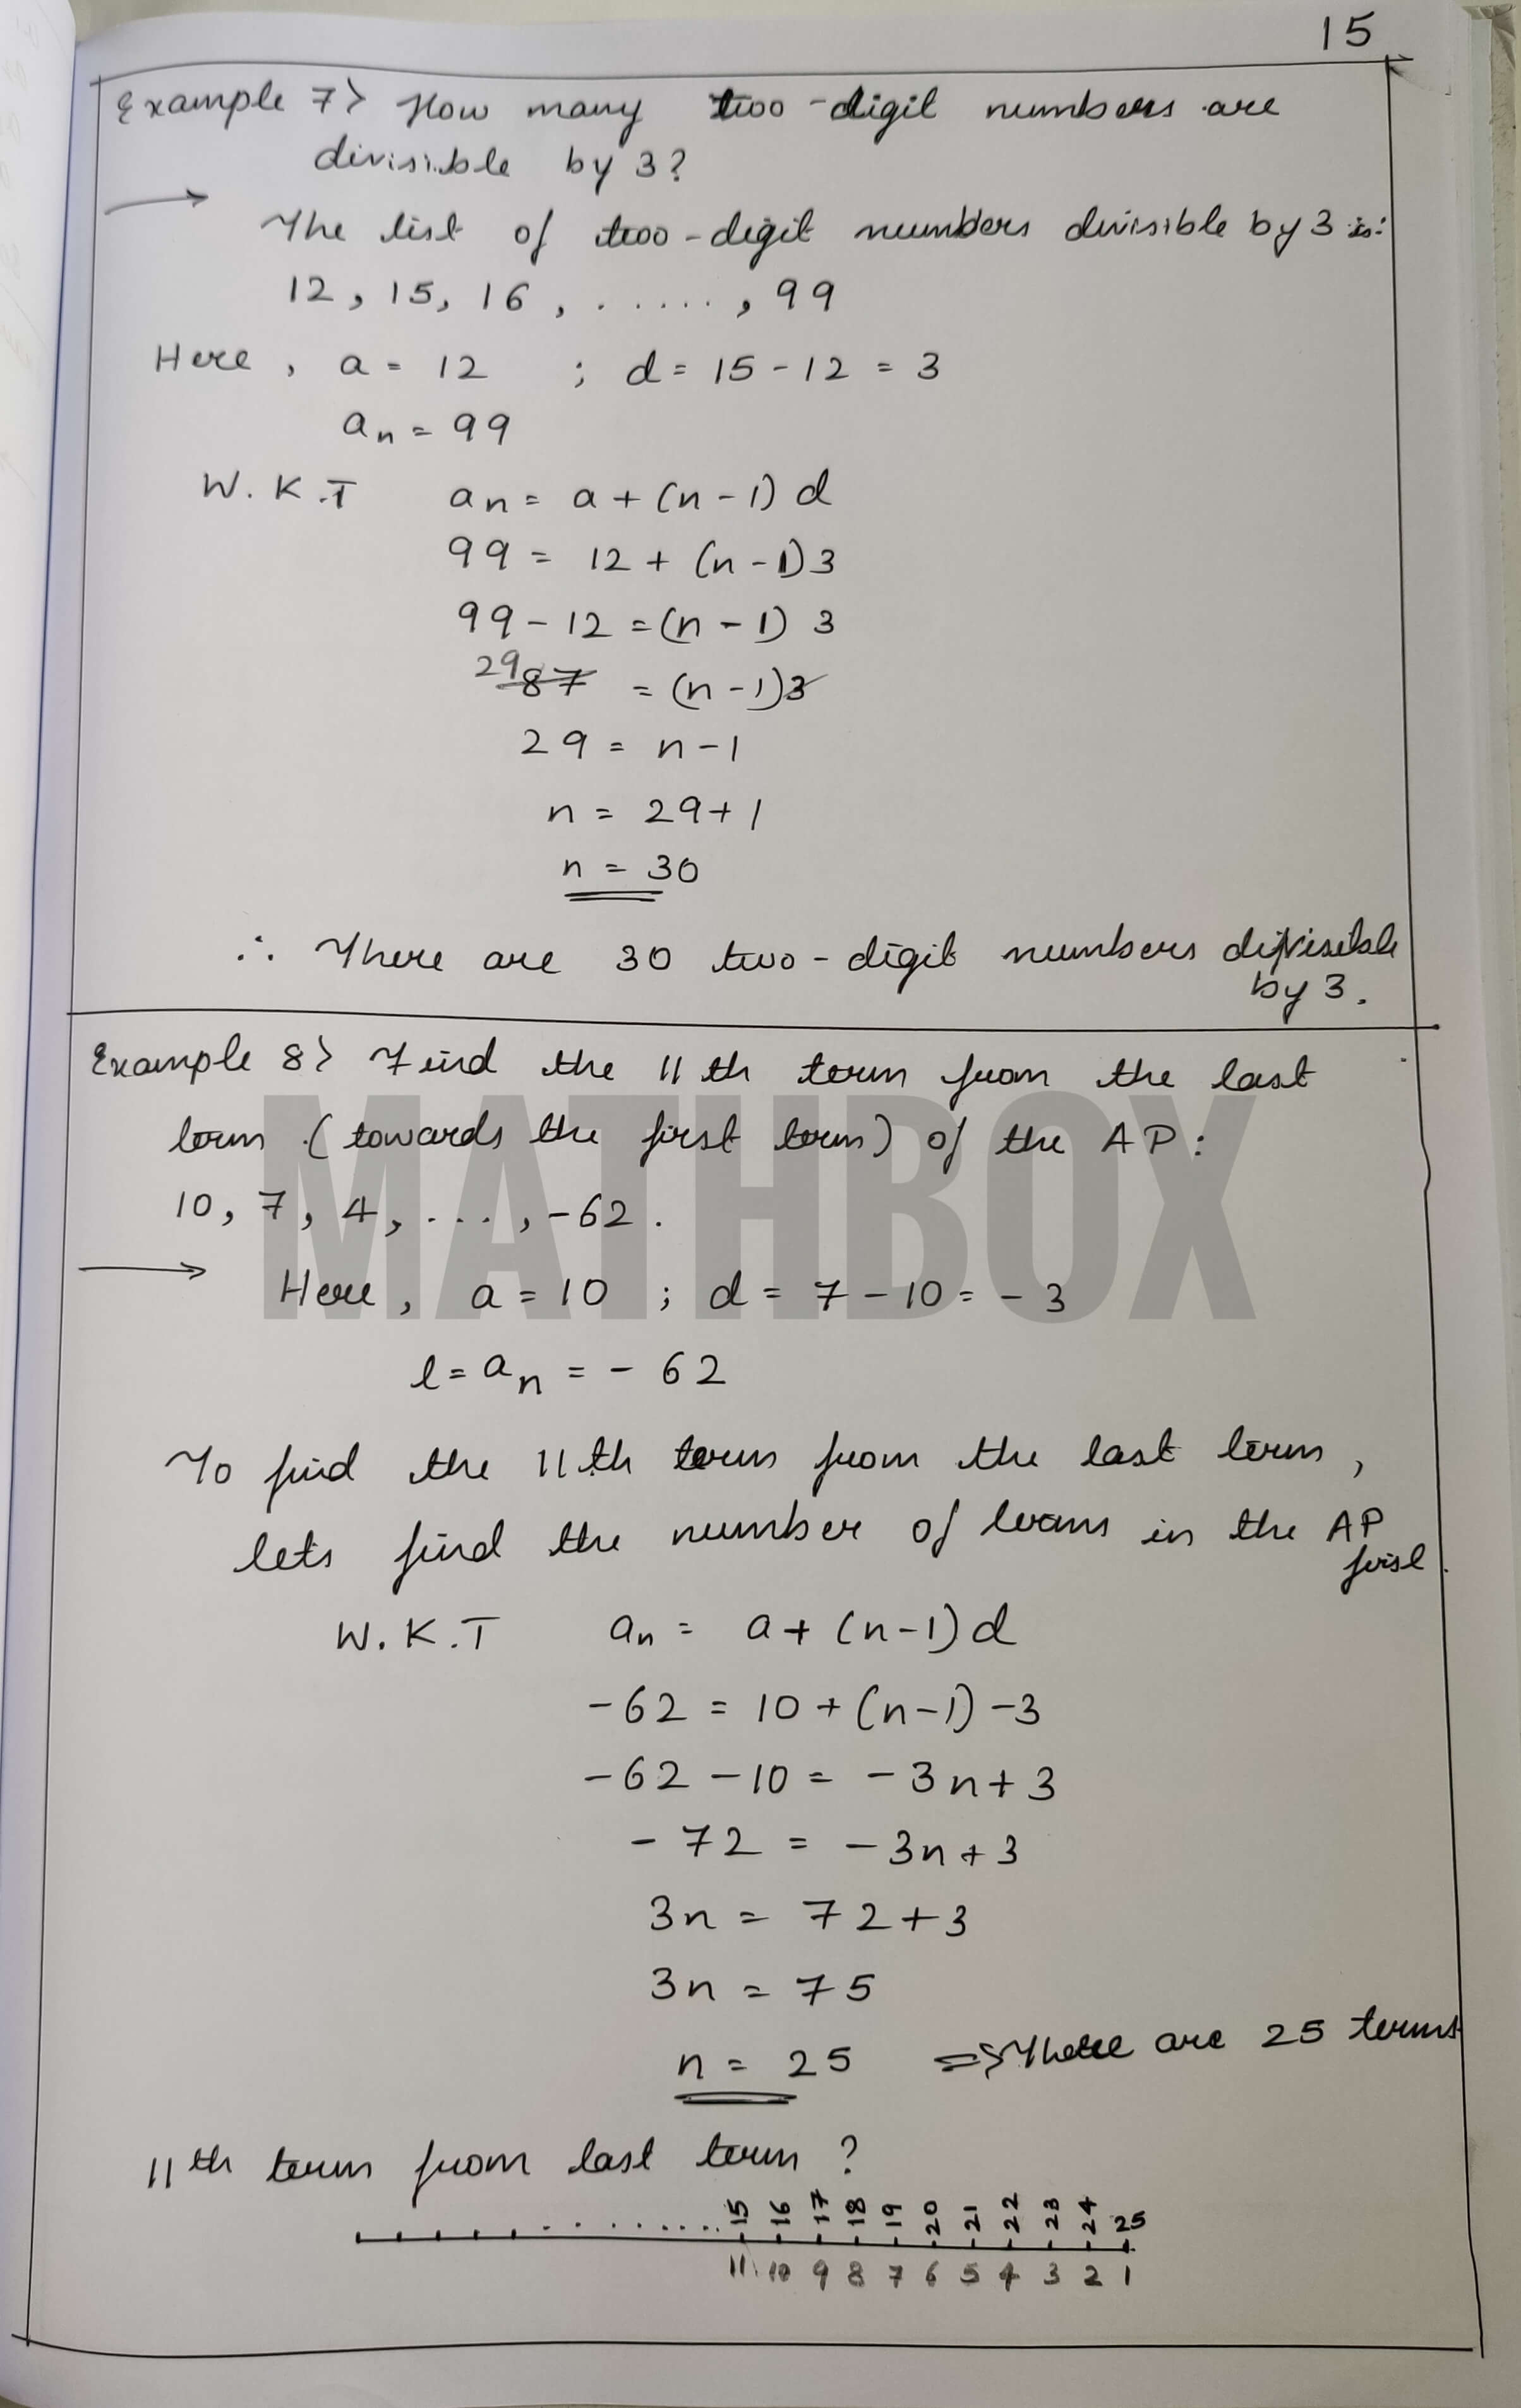 15
Example 7> How many two-digit numbers are
divisible by 3?
The list of two-digit numbers divisible by 3 is:
12, 15, 16, ......, 99
Here, a = 12 ; d = 15 - 12 = 3
aₙ = 99
W.K.T aₙ = a + (n-1) d
99 = 12 + (n-1)3
99 - 12 = (n-1) 3
29 87 = (n-1)3
29 = n-1
n = 29+1
n = 30
∴ There are 30 two-digit numbers divisible
by 3.
Example 8> Find the 11th term from the last
term (towards the first term) of the AP:
MATHBOX
10, 7, 4, ...., -62.
Here, a = 10 ; d = 7 - 10 = - 3
l = aₙ = - 62
To find the 11th term from the last term,
lets find the number of terms in the AP
first.
W.K.T aₙ = a + (n-1) d
-62 = 10 + (n-1) -3
-62 - 10 = -3n + 3
- 72 = -3n + 3
3n = 72 + 3
3n = 75
n = 25 => There are 25 terms
11th term from last term ?
15 16 17 18 19 20 21 22 23 24 25
11 10 9 8 7 6 5 4 3 2 1